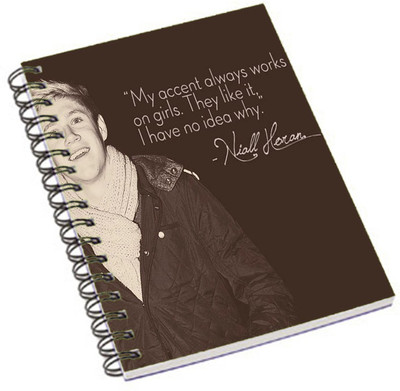 “My accent always works
on girls. They like it,
I have no idea why.
-Niall Horan